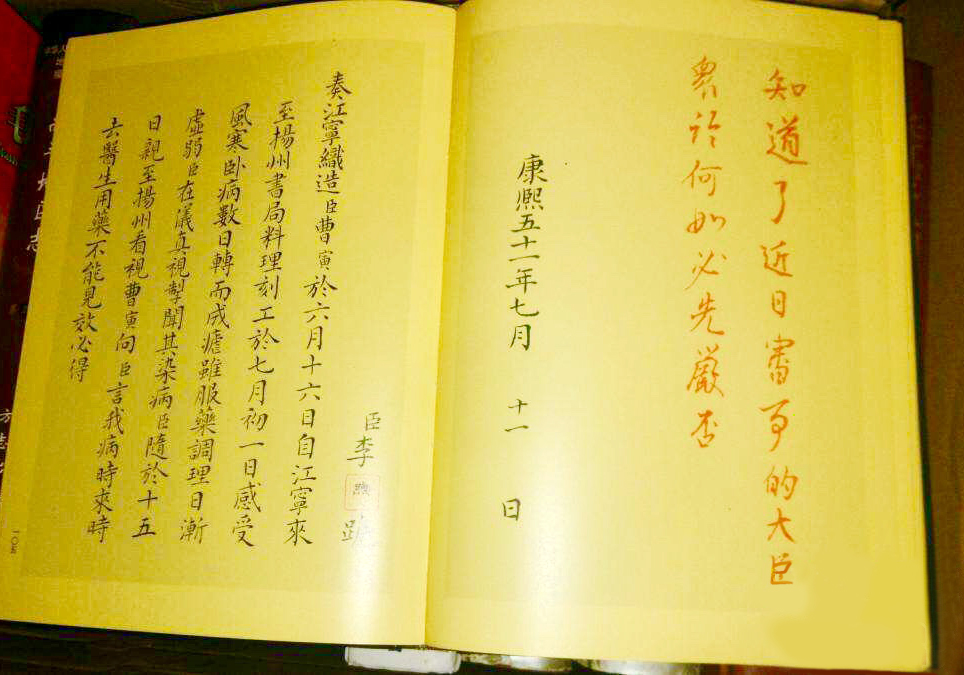 知道了近日審事的大臣
眾論何如必先嚴否
康熙五十一年七月 十一 日
臣李煦跪
奏江寧織造臣曹寅於六月十六日自江寧來
至揚州書局料理刻工於七月初一日感受
風寒卧病數日轉而成瘧雖服藥調理日漸
虛弱臣在儀真視掣聞其染病臣隨於十五
日親至揚州看視曹寅向臣言我病時來時
去醫生用藥不能見效必得
一〇五